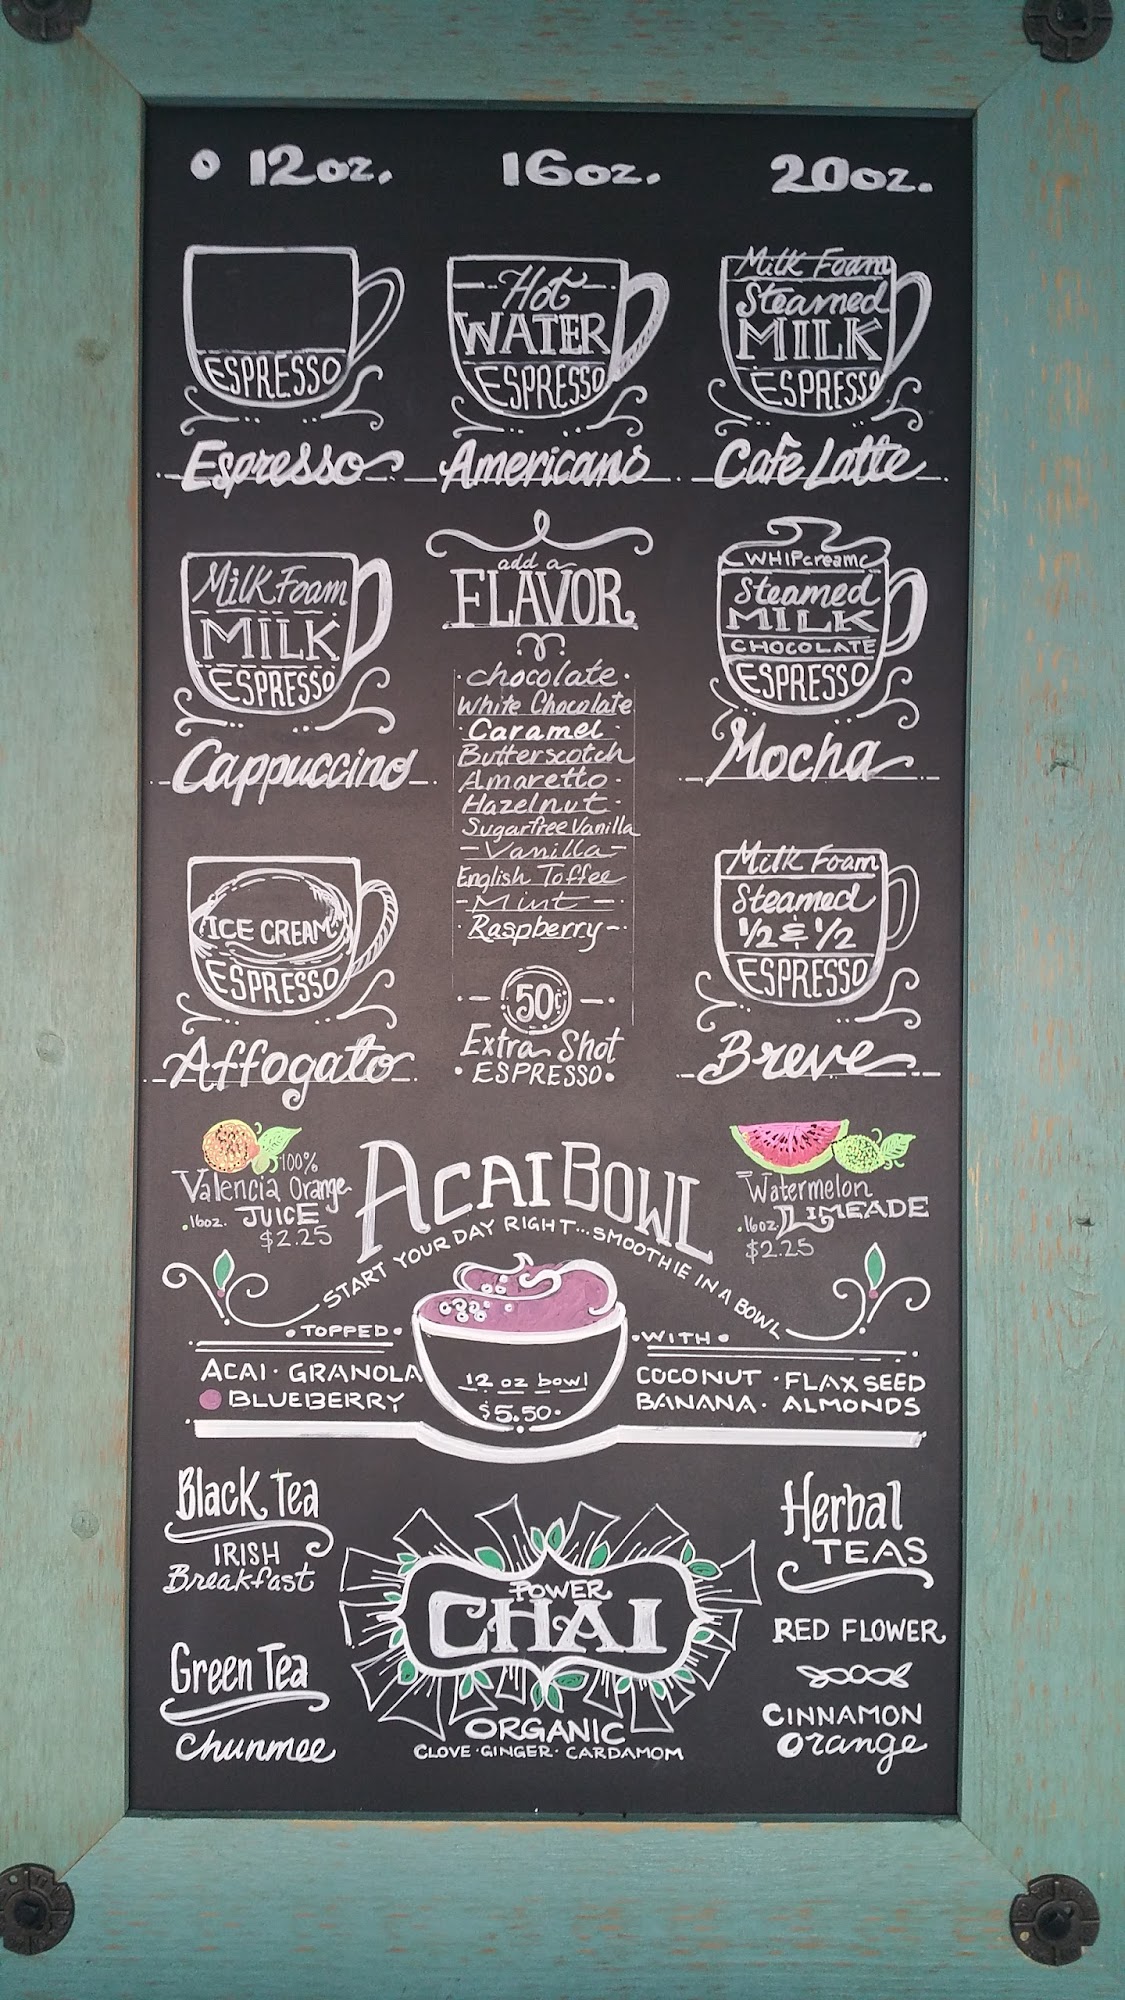 12oz. 16oz. 20oz.
ESPRESSO
Espresso
Hot
WATER
ESPRESSO
Americano
Milk Foam
Steamed
MILK
ESPRESSO
Café Latte
Milk Foam
MILK
ESPRESSO
Cappuccino
add a
FLAVOR
chocolate
White Chocolate
Caramel
Butterscotch
Amaretto
Hazelnut
Sugarfree Vanilla
Vanilla
English Toffee
Mint
Raspberry
50¢
Extra Shot
ESPRESSO
WHIPcreamc
Steamed
MILK
CHOCOLATE
ESPRESSO
Mocha
ICE CREAM
ESPRESSO
Affogato
Milk Foam
Steamed
1/2 & 1/2
ESPRESSO
Breve
100%
Valencia Orange
16oz. JUICE
$2.25
ACAI BOWL
START YOUR DAY RIGHT...SMOOTHIE IN A BOWL
Watermelon
16oz. LIMEADE
$2.25
TOPPED WITH
ACAI · GRANOLA
BLUEBERRY
12 oz bowl
$5.50
COCONUT · FLAX SEED
BANANA · ALMONDS
Black Tea
IRISH
Breakfast
Green Tea
Chunmee
POWER
CHAI
ORGANIC
CLOVE · GINGER · CARDAMOM
Herbal
TEAS
RED FLOWER
CINNAMON
Orange